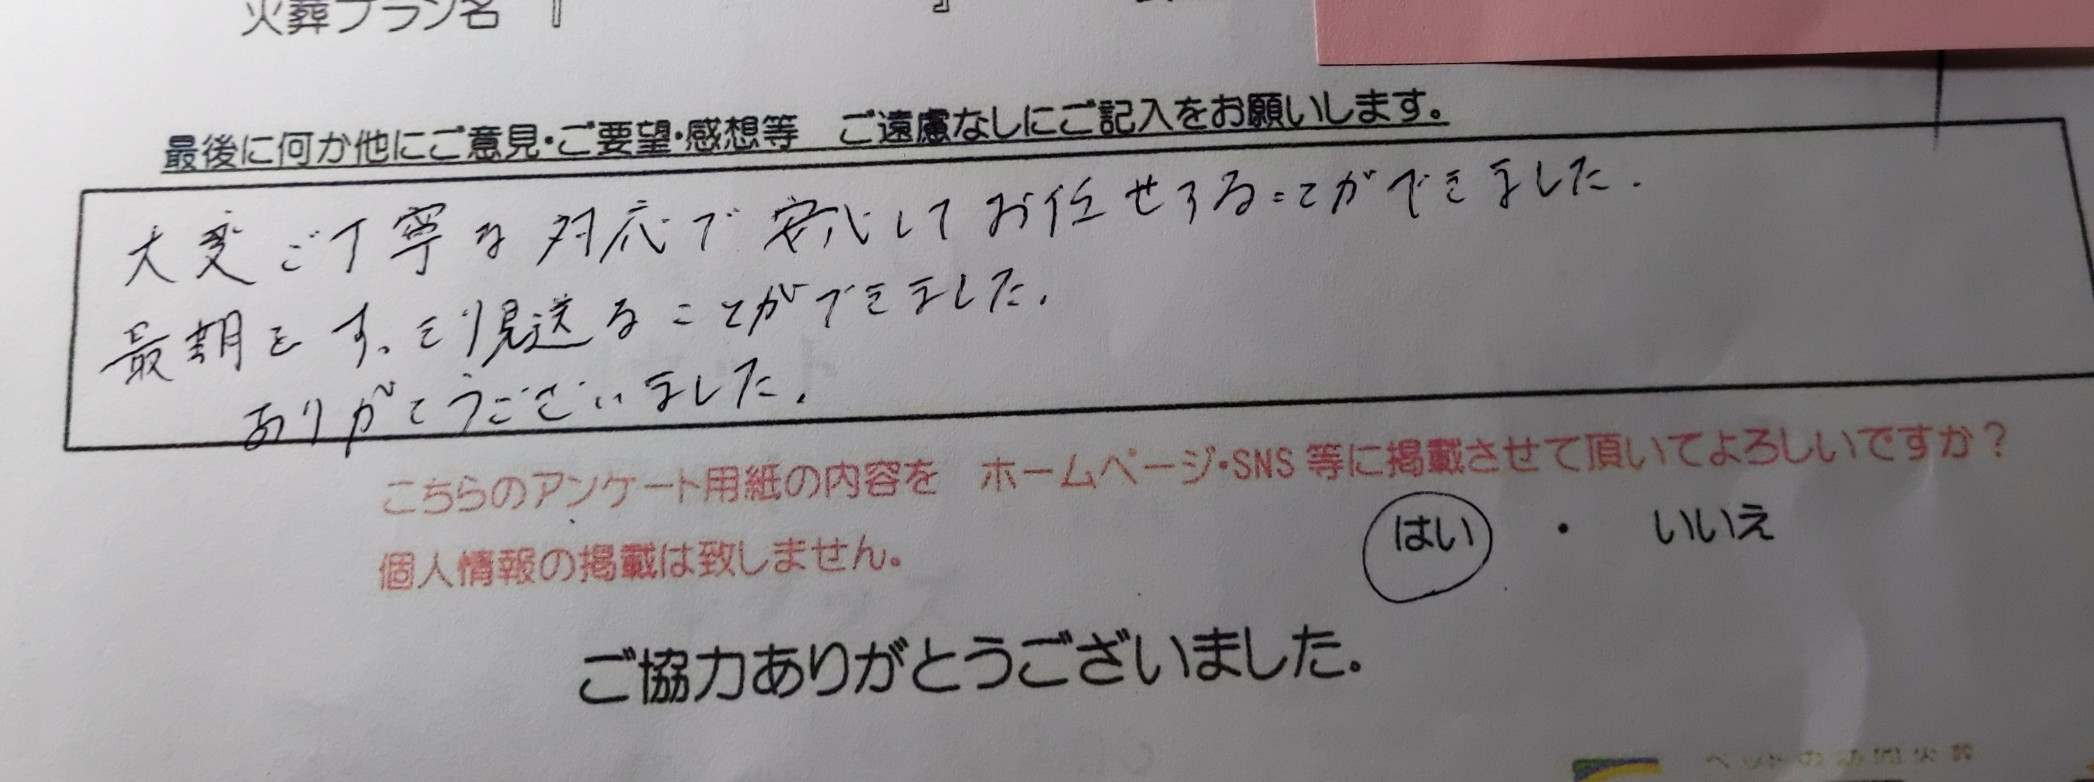 火葬プラン名 『 』
最後に何か他にご意見・ご要望・感想等 ご遠慮なしにご記入をお願いします。
大変ご丁寧な対応で安心してお任せすることができました.
最期をすっきり見送ることができました.
ありがとうございました.
こちらのアンケート用紙の内容を ホームページ・SNS 等に掲載させて頂いてよろしいですか?
はい ・ いいえ
個人情報の掲載は致しません。
ご協力ありがとうございました.